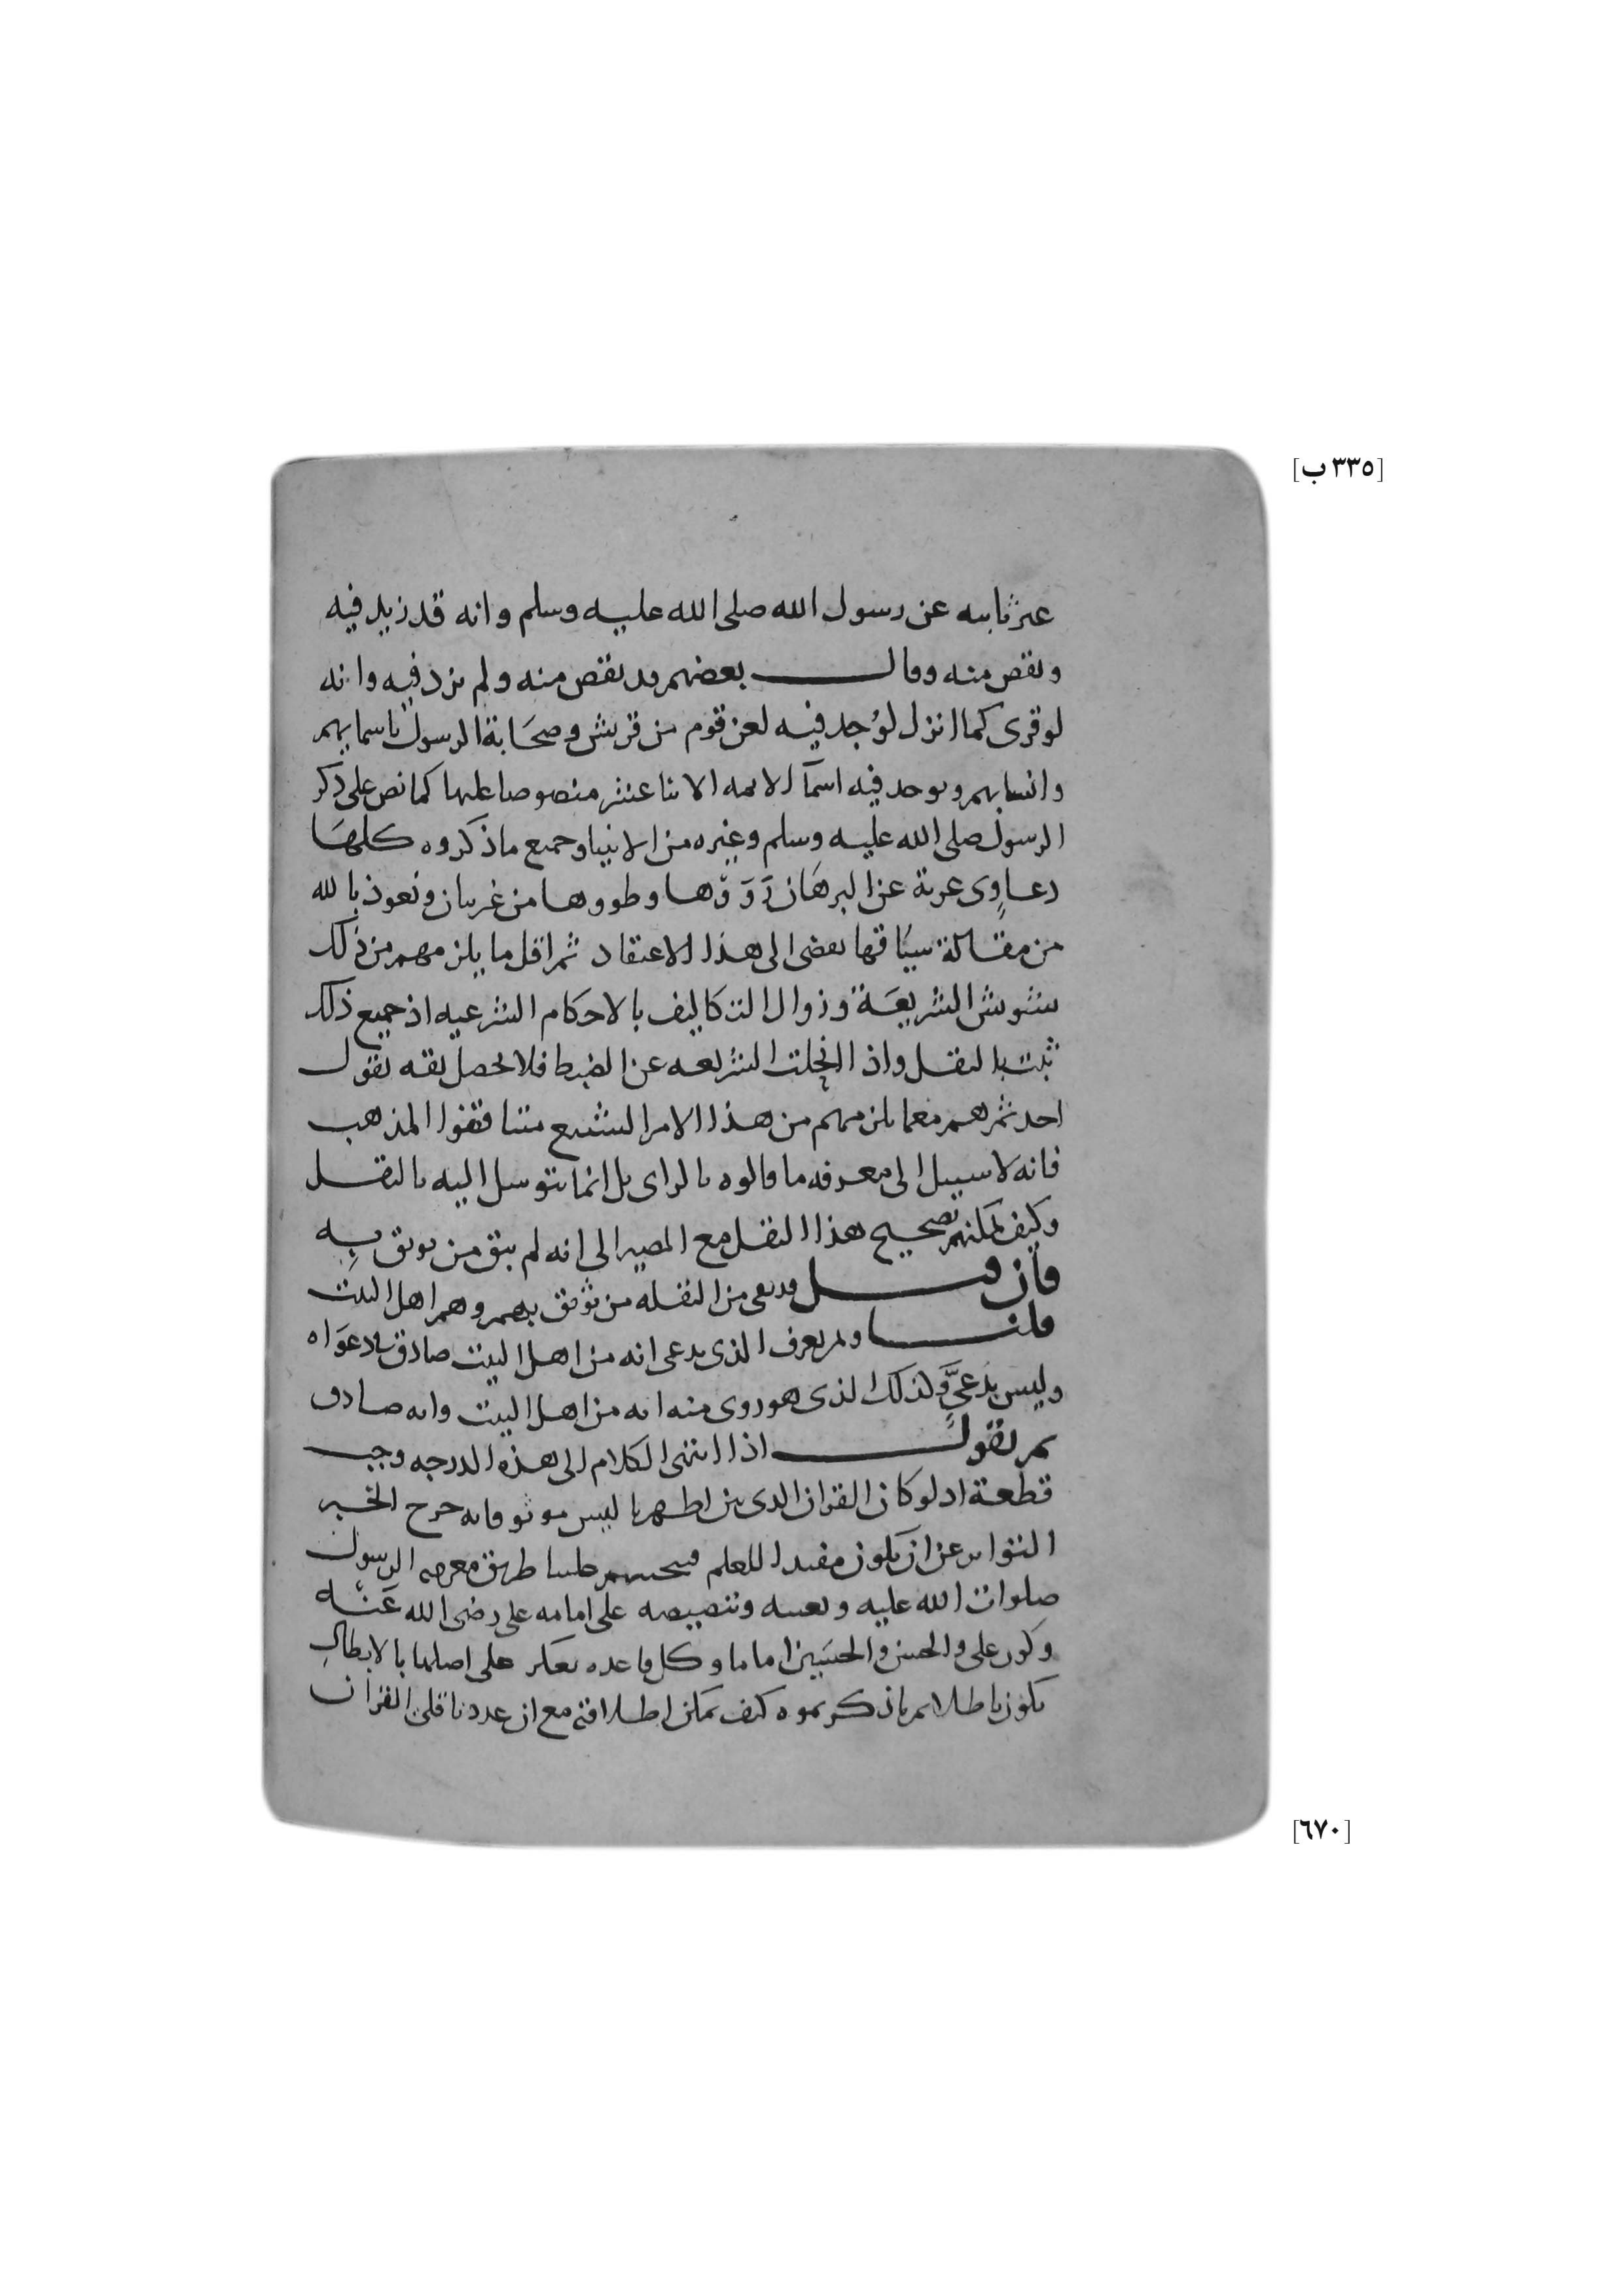 [٣٣٥ ب]
غير ثابته عن رسول الله صلى الله عليه وسلم وانه قد زيد فيه
ونقص منه وقال بعضهم قد نقص منه ولم يزد فيه وانه
لو قرى كما انزل لوُجد فيه لعن قوم من قريش وصحَابة الرسول باسمايهم
وانسابهم ويوجد فيه اسمآ الايمه الاثنا عشر منصوصا عليها كما نص على ذكر
الرسول صلى الله عليه وسلم وغيره من الانبيا وجميع ما ذكروه كلهَا
دعاوٍى عرية عن البرهَان رَوَوْها وطووها من غير بيان ونعوذ بالله
من مقالة سيَاقها يفضى الى هذا الاعتقاد ثم اقل ما يلزمهم من ذلك
تشويش الشريعَة وزوال التكاليف بالاحكام الشرعيه اذ جميع ذلك
ثبت بالنقل واذا انحلت الشريعه عن الضبط فلا يحصل ثقه بقول
احد ثم هم معما يلزمهم من هذا الامر الشنيع متناقضوا المذهب
فانه لا سبيل الى معرفه ما قالوه بالراى بل انما يتوسل اليه بالنقل
وكيف يمكنهم تصحيح هذا النقل مع المصير الى انه لم يبق من يوثق به
فان قيل قد بقى من النقله من يُوثق بهم وهم اهل البيت
قلنا ولم يعرف الذى يدعى انه من اهل البيت صادق بدعوَاه
وليس بدَعىٍّ وكذلك الذى هو روى منه انه من اهل البيت وانه صادق
ثم نقول اذا انتهى الكلام الى هذه الدرجه وجب
قطعة اذ لو كان القران الذى بين اظهرنا ليس موثوقا به خرج الخبر
التواتر عن ان يكون مفيدا للعلم فينحسم علينا طريق معرفه الرسول
صلوات الله عليه وتنصيصه على امامه على رضى الله عَنْه
وكون على والحسن والحسَين اماما وكل قاعده تعكر على اصلها بالابطال
يكون باطلا ثم ما ذكرتموه كيف يمكن اطلاقه مع ان عدد ناقلى القران
[٦٧٠]